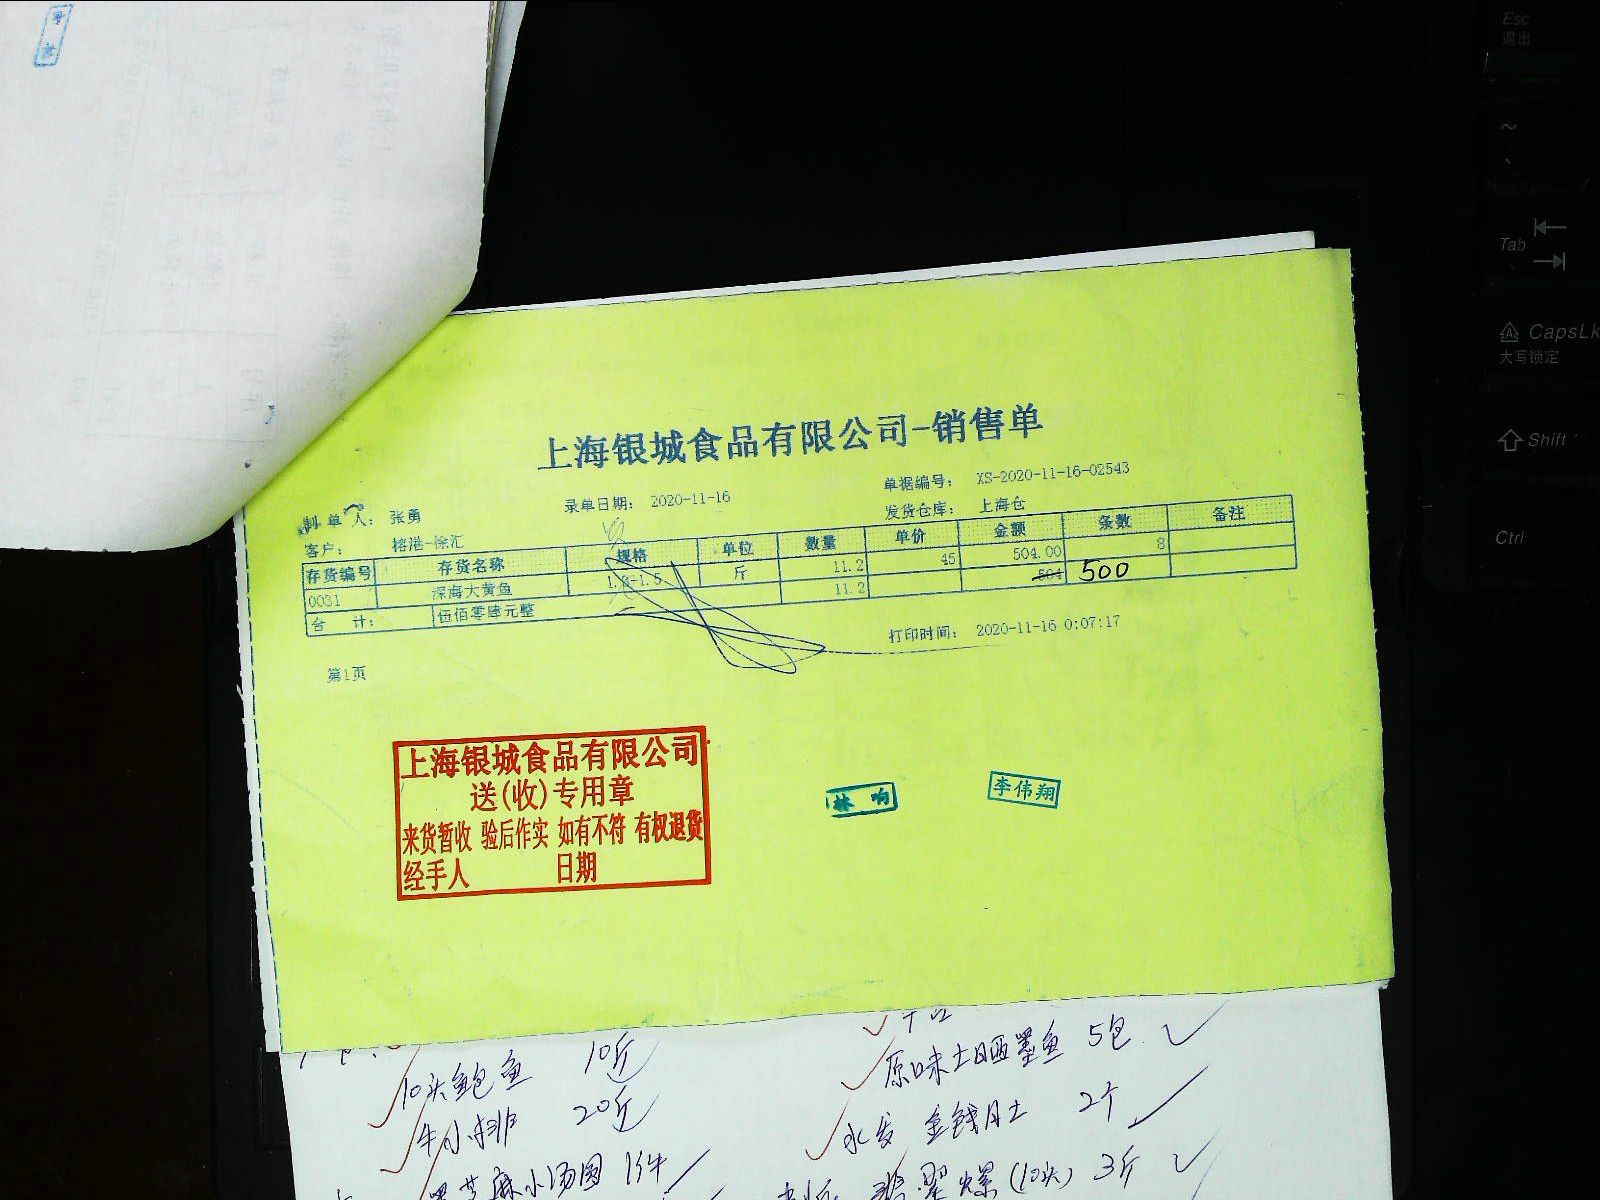 上海银城食品有限公司-销售单
制单人： 张勇
录单日期： 2020-11-16
单据编号： XS-2020-11-16-02543
客户： 榕港-徐汇
发货仓库： 上海仓
存货编号 存货名称 规格 单位 数量 单价 金额 条数 备注
0031 深海大黄鱼 斤 11.2 45 504.00 8
合 计： 伍佰零肆元整 11.2 504 500
打印时间： 2020-11-16 0:07:17
第1页
上海银城食品有限公司
送(收)专用章
来货暂收 验后作实 如有不符 有权退货
经手人 日期
林 响
李伟翔
10头鲍鱼 10斤
牛小排 20斤
芝麻小汤圆 1件
原味土晒墨鱼 5包
水发 金钱肚 2个
翡翠螺(10头) 3斤
Esc
退出
~
Tab
CapsLk
大写锁定
Shift
Ctrl